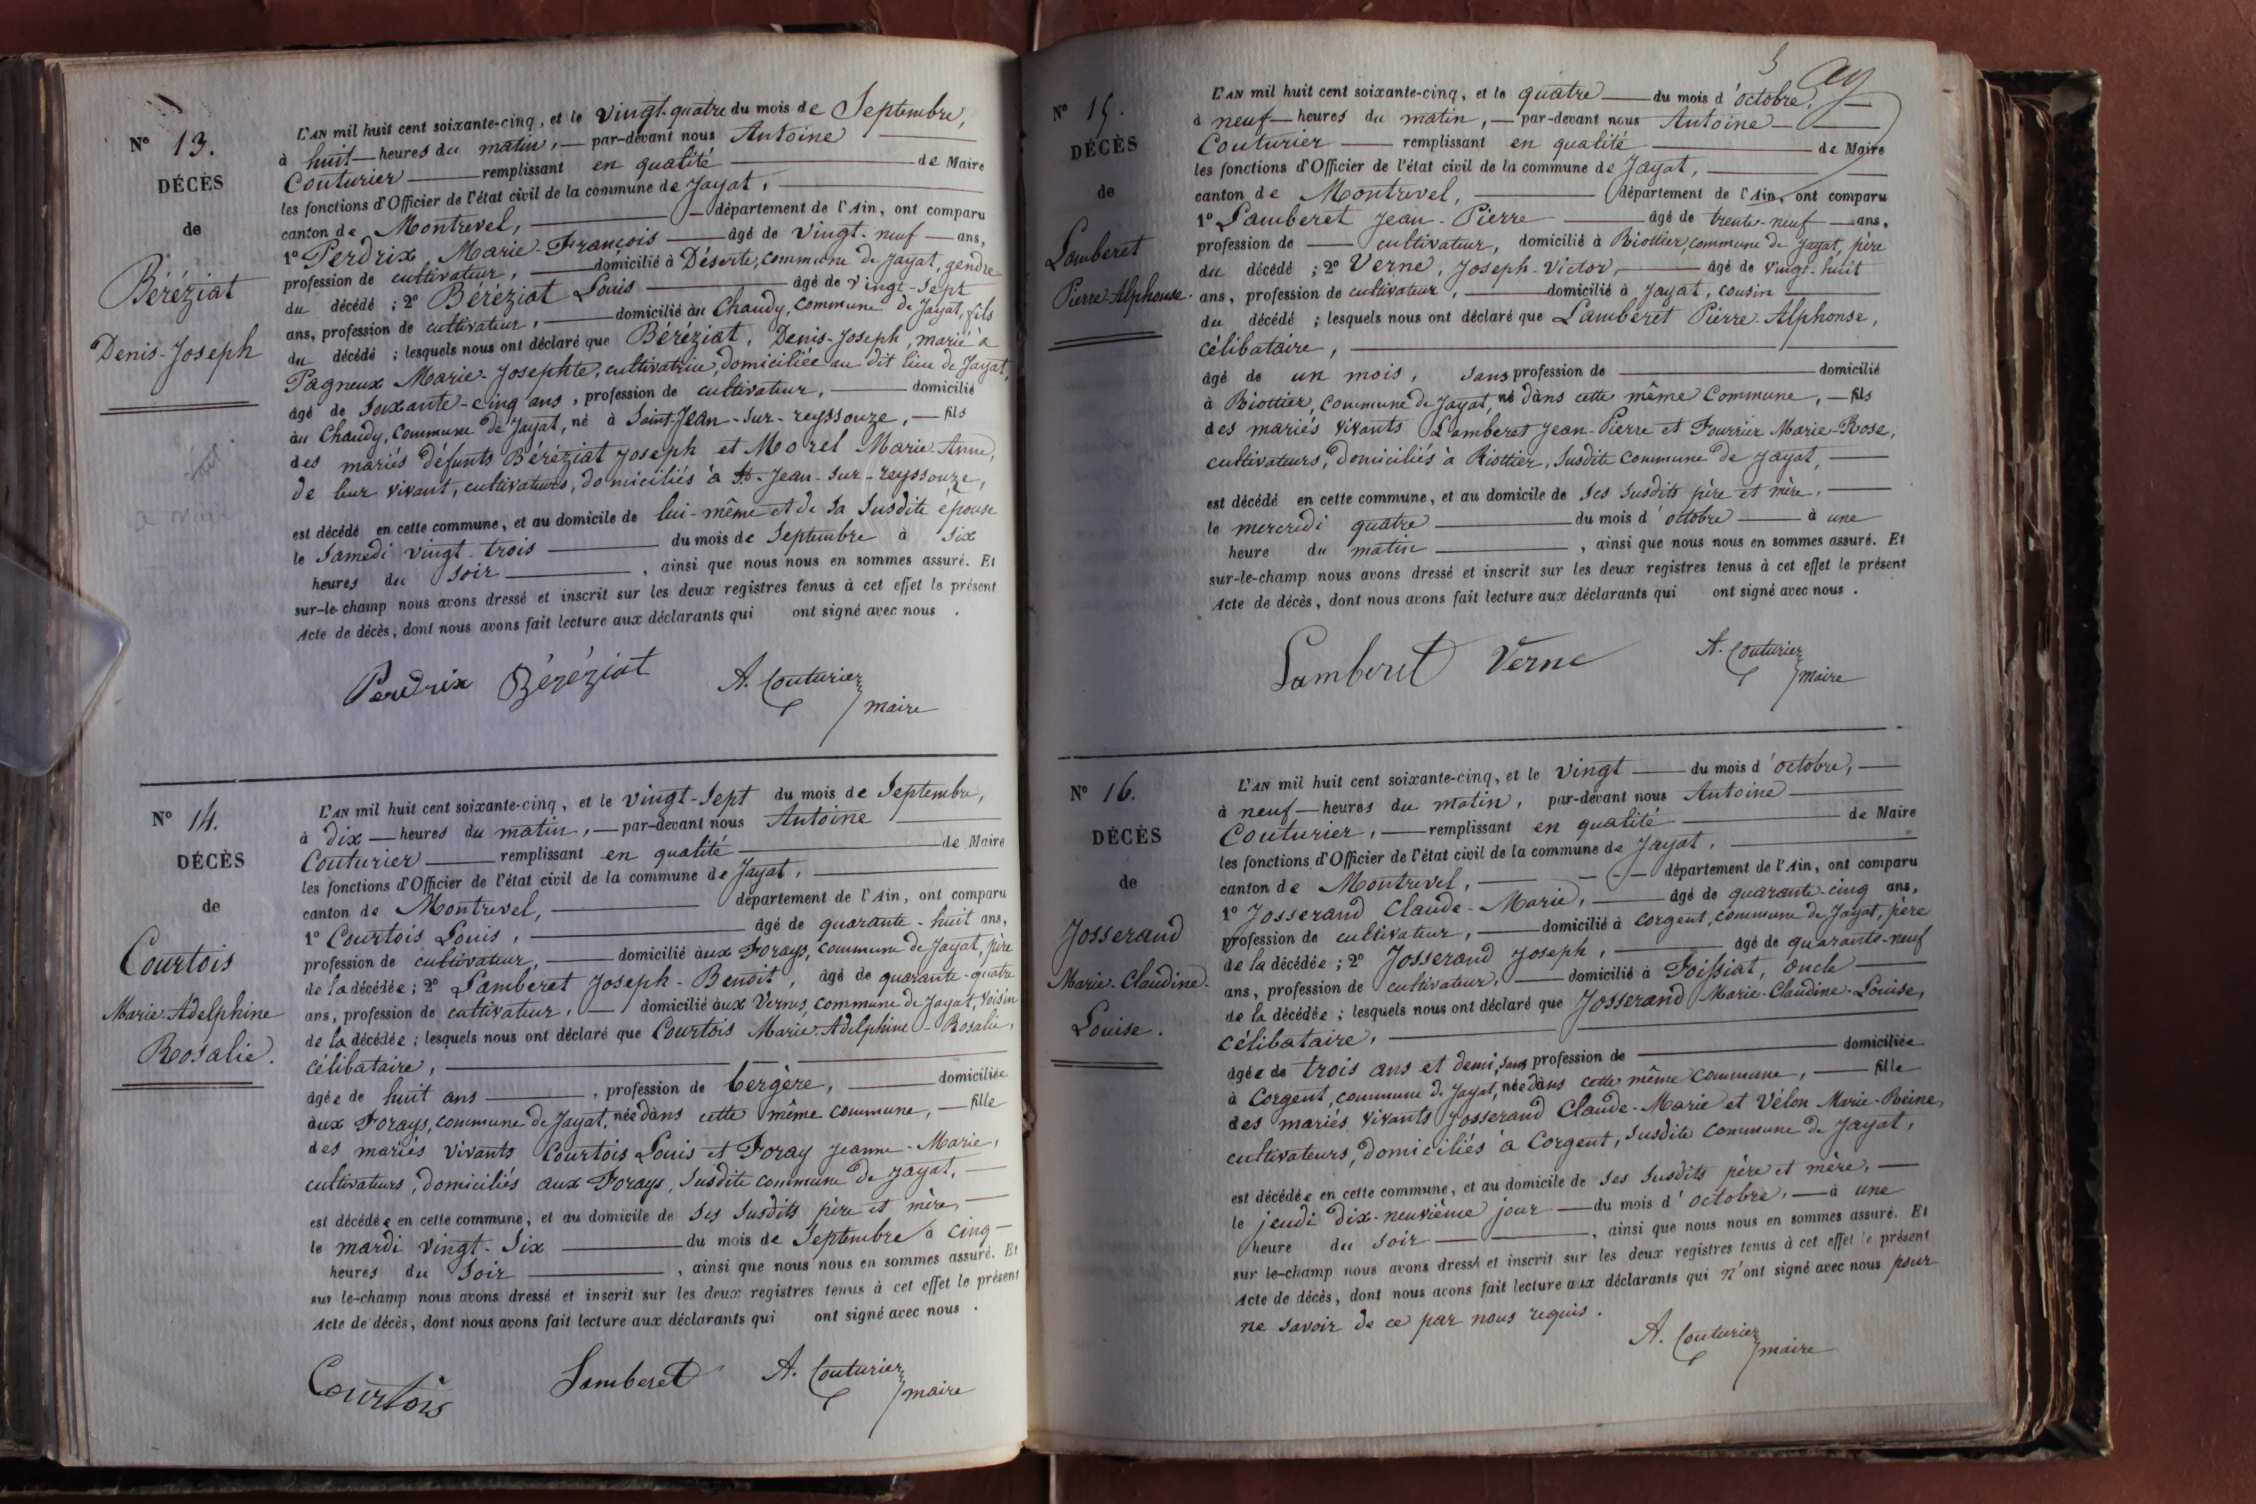 N° 13.
DÉCÈS
de
Béréziat
Denis-Joseph
L'AN mil huit cent soixante-cinq, et le vingt-quatre du mois de Septembre,
à huit heures du matin, par-devant nous Antoine
Couturier remplissant en qualité de Maire
les fonctions d'Officier de l'état civil de la commune de Jayat,
canton de Montrevel, département de l'Ain, ont comparu
1° Perdrix Marie-François âgé de vingt-neuf ans,
profession de cultivateur, domicilié à Déserte, commune de Jayat, gendre
du décédé ; 2° Béréziat Louis âgé de vingt-sept
ans, profession de cultivateur, domicilié au Chaudy, commune de Jayat, fils
du décédé ; lesquels nous ont déclaré que Béréziat, Denis-Joseph, marié à
Pagneux Marie-Josephte, cultivatrice, domiciliée au dit lieu de Jayat,
âgé de soixante-cinq ans, profession de cultivateur, domicilié
au Chaudy, commune de Jayat, né à Saint-Jean-sur-reyssouze, fils
des mariés défunts Béréziat Joseph et Morel Marie Anne,
de leur vivant, cultivateurs, domiciliés à St-Jean-sur-reyssouze,
est décédé en cette commune, et au domicile de lui-même et de sa susdite épouse
le samedi vingt-trois du mois de Septembre à six
heures du soir, ainsi que nous nous en sommes assuré. Et
sur-le-champ nous avons dressé et inscrit sur les deux registres tenus à cet effet le présent
Acte de décès, dont nous avons fait lecture aux déclarants qui ont signé avec nous.
Perdrix Béréziat A. Couturier
maire
N° 14.
DÉCÈS
de
Courtois
Marie-Adelphine
Rosalie.
L'AN mil huit cent soixante-cinq, et le vingt-sept du mois de Septembre,
à dix heures du matin, par-devant nous Antoine
Couturier remplissant en qualité de Maire
les fonctions d'Officier de l'état civil de la commune de Jayat,
canton de Montrevel, département de l'Ain, ont comparu
1° Courtois Louis, âgé de quarante-huit ans,
profession de cultivateur, domicilié aux Forays, commune de Jayat, père
de la décédée ; 2° Lamberet Joseph-Benoit, âgé de quarante-quatre
ans, profession de cultivateur, domicilié aux Vernes, commune de Jayat, voisin
de la décédée ; lesquels nous ont déclaré que Courtois Marie-Adelphine-Rosalie,
célibataire,
âgée de huit ans, profession de bergère, domiciliée
aux Forays, commune de Jayat, née dans cette même commune, fille
des mariés vivants Courtois Louis et Foray Jeanne-Marie,
cultivateurs, domiciliés aux Forays, susdite commune de Jayat,
est décédée en cette commune, et au domicile de ses susdits père et mère,
le mardi vingt-six du mois de Septembre à cinq
heures du soir, ainsi que nous nous en sommes assuré. Et
sur le-champ nous avons dressé et inscrit sur les deux registres tenus à cet effet le présent
Acte de décès, dont nous avons fait lecture aux déclarants qui ont signé avec nous.
Courtois Lamberet A. Couturier
maire
N° 15.
DÉCÈS
de
Lamberet
Pierre-Alphonse.
L'AN mil huit cent soixante-cinq, et le quatre du mois d'octobre,
à neuf heures du matin, par-devant nous Antoine
Couturier remplissant en qualité de Maire
les fonctions d'Officier de l'état civil de la commune de Jayat,
canton de Montrevel, département de l'Ain, ont comparu
1° Lamberet Jean-Pierre âgé de trente-neuf ans,
profession de cultivateur, domicilié à Riottier, commune de Jayat, père
du décédé ; 2° Verne, Joseph-Victor, âgé de vingt-huit
ans, profession de cultivateur, domicilié à Jayat, cousin
du décédé ; lesquels nous ont déclaré que Lamberet Pierre-Alphonse,
célibataire,
âgé de un mois, sans profession de domicilié
à Riottier, commune de Jayat, né dans cette même commune, fils
des mariés vivants Lamberet Jean-Pierre et Fourrier Marie-Rose,
cultivateurs, domiciliés à Riottier, susdite commune de Jayat,
est décédé en cette commune, et au domicile de ses susdits père et mère,
le mercredi quatre du mois d'octobre à une
heure du matin, ainsi que nous nous en sommes assuré. Et
sur-le-champ nous avons dressé et inscrit sur les deux registres tenus à cet effet le présent
Acte de décès, dont nous avons fait lecture aux déclarants qui ont signé avec nous.
Lamberet Verne A. Couturier
maire
N° 16.
DÉCÈS
de
Josserand
Marie-Claudine-
Louise.
L'AN mil huit cent soixante-cinq, et le vingt du mois d'octobre,
à neuf heures du matin, par-devant nous Antoine
Couturier, remplissant en qualité de Maire
les fonctions d'Officier de l'état civil de la commune de Jayat,
canton de Montrevel, département de l'Ain, ont comparu
1° Josserand Claude-Marie, âgé de quarante-cinq ans,
profession de cultivateur, domicilié à Corgent, commune de Jayat, père
de la décédée ; 2° Josserand Joseph, âgé de quarante-neuf
ans, profession de cultivateur, domicilié à Foissiat, oncle
de la décédée ; lesquels nous ont déclaré que Josserand Marie-Claudine-Louise,
célibataire,
âgée de trois ans et demi, sans profession de domiciliée
à Corgent, commune de Jayat, née dans cette même commune, fille
des mariés vivants Josserand Claude-Marie et Vélon Marie-Reine,
cultivateurs, domiciliés à Corgent, susdite commune de Jayat,
est décédée en cette commune, et au domicile de ses susdits père et mère,
le jeudi dix-neuvième jour du mois d'octobre, à une
heure du soir, ainsi que nous nous en sommes assuré. Et
sur le-champ nous avons dressé et inscrit sur les deux registres tenus à cet effet le présent
Acte de décès, dont nous avons fait lecture aux déclarants qui n'ont signé avec nous pour
ne savoir de ce par nous requis.
A. Couturier
maire